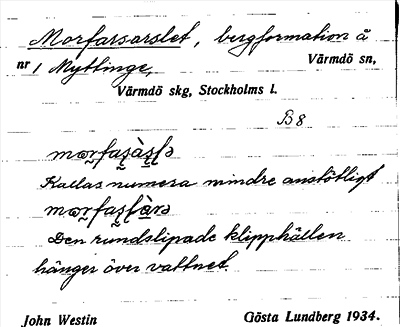 Morfarsarslet, bergformation å
nr 1 Myttinge, Värmdö sn,
Värmdö skg, Stockholms l.
B8
Kallas numera mindre anstötligt
Den rundslipade klipphällen
hänger över vattnet.
John Westin Gösta Lundberg 1934.